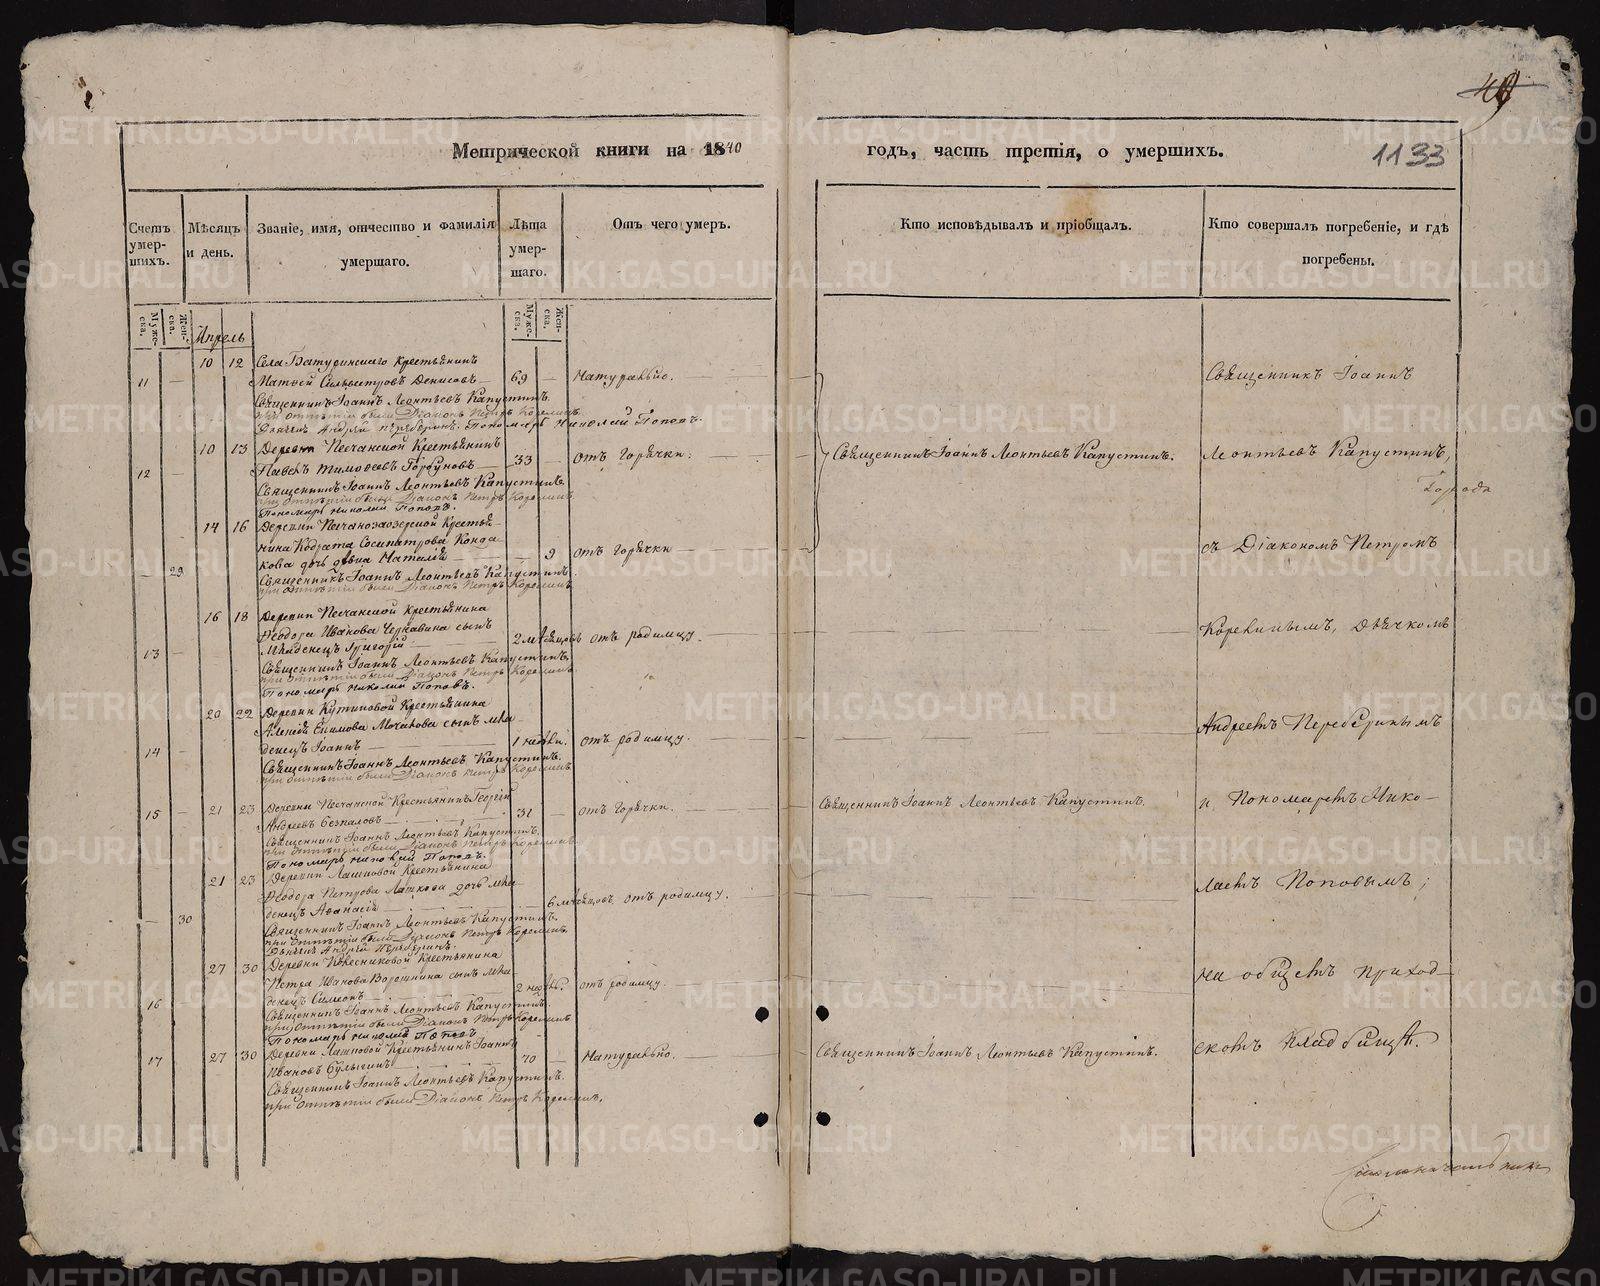 1133
Метрической книги на 1840
годъ, часть третія, о умершихъ.
Счетъ умер-
шихъ.
Мѣсяцъ
и день.
Званіе, имя, отчество и фамилія
умершаго.
Лѣта
умер-
шаго.
Отъ чего умеръ.
Кто исповѣдывалъ и пріобщалъ.
Кто совершалъ погребеніе, и гдѣ
погребены.
Муже-
ска.
Жен-
ска.
Муже-
ска.
Жен-
ска.
Апрель
11 — 10 12 Села Батуринскаго Крестьянинъ
Матѳей Сильвестровъ Денисовъ — 69 — Натурально.
Священникъ Іоаннъ Леонтьевъ Капустинъ.
при отпѣтіи были Діаконъ Петръ Коровинъ
Дьячекъ Андрей Переберинъ. Пономарь Николай Поповъ.
12 — 10 13 Деревни Песчанской Крестьянинъ
Павелъ Тимоѳеевъ Горбуновъ — 33 — отъ Горячки.
Священникъ Іоаннъ Леонтьевъ Капустинъ.
при отпѣтіи были Діаконъ Петръ Коровинъ
Пономарь Николай Поповъ.
— 29 14 16 Деревни Песчаноозерской Крестья-
нина Кодрата Сосипатрова Конда-
кова дочь дѣвка Наталія — — 9 отъ Горячки
Священникъ Іоаннъ Леонтьевъ Капустинъ.
при отпѣтіи были Діаконъ Петръ Коровинъ
13 — 16 18 Деревни Песчанской Крестьянина
Ѳеодора Иванова сынъ
Младенецъ Григорій — 2 мѣсяцовъ отъ родимцу.
Священникъ Іоаннъ Леонтьевъ Капустинъ.
при отпѣтіи были Діаконъ Петръ Коровинъ
Пономарь Николай Поповъ.
14 — 20 22 Деревни Кутиковой Крестьянина
Алексія Екимова сынъ мла-
денецъ Іоаннъ — 1 недѣли. отъ родимцу.
Священникъ Іоаннъ Леонтьевъ Капустинъ.
при отпѣтіи были Діаконъ Петръ Коровинъ
15 — 21 23 Деревни Песчанской Крестьянинъ Георгій
Андреевъ Безпаловъ — 31 — отъ Горячки.
Священникъ Іоаннъ Леонтьевъ Капустинъ.
при отпѣтіи были Діаконъ Петръ Коровинъ
Пономарь Николай Поповъ.
— 30 21 23 Деревни Лашковой Крестьянина
Ѳеодора Петрова Лашкова дочь мла-
денецъ Аѳанасія — 6 мѣсяцовъ. отъ родимцу.
Священникъ Іоаннъ Леонтьевъ Капустинъ.
при отпѣтіи были Діаконъ Петръ Коровинъ
Дьячекъ Андрей Переберинъ.
16 — 27 30 Деревни Колесниковой Крестьянина
Петра Иванова Ворошнина сынъ мла-
денецъ Симеонъ — 2 недѣль. отъ родимцу.
Священникъ Іоаннъ Леонтьевъ Капустинъ.
при отпѣтіи были Діаконъ Петръ Коровинъ
Пономарь Николай Поповъ
17 — 27 30 Деревни Лашковой Крестьянинъ Іоаннъ
Ивановъ Булыгинъ 70 — Натурально.
Священникъ Іоаннъ Леонтьевъ Капустинъ.
при отпѣтіи были Діаконъ Петръ Коровинъ.
Священникъ Іоаннъ Леонтьевъ Капустинъ.
Священникъ Іоаннъ Леонтьевъ Капустинъ.
Священникъ Іоаннъ Леонтьевъ Капустинъ.
Священникъ Іоаннъ
Леонтьевъ Капустинъ,
Города
съ Діакономъ Петромъ
Коровинымъ, Дьячкомъ
Андреемъ Переберинымъ
и Пономаремъ Нико-
лаемъ Поповымъ;
на общемъ приход-
скомъ Кладбищѣ.
METRIKI.GASO-URAL.RU